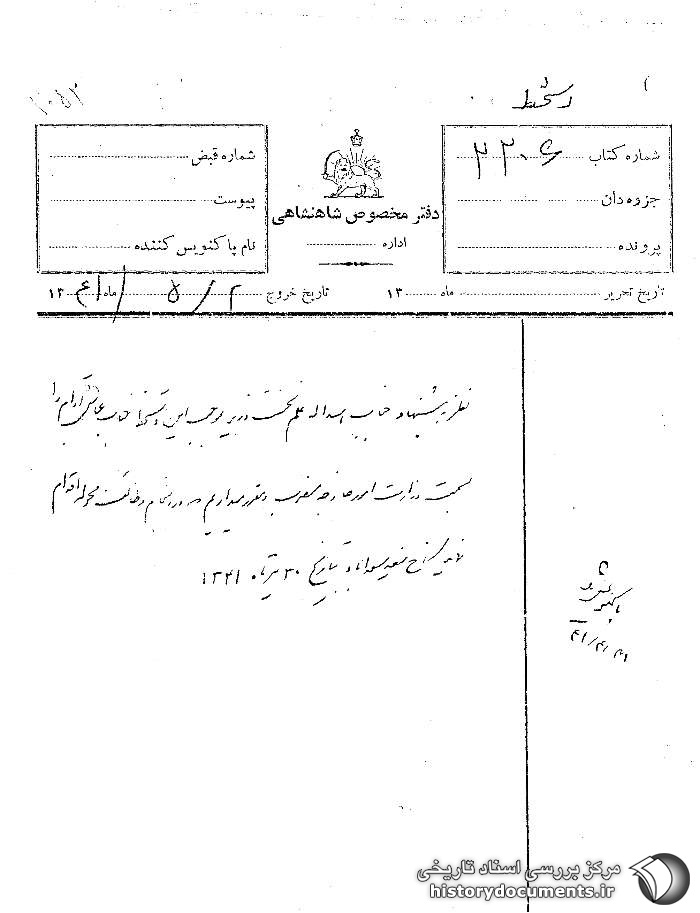 دستخط
شماره کتاب ۲۲۰۶
جزوه دان
پرونده
دفتر مخصوص شاهنشاهی
اداره
شماره قبض
پیوست
نام پاکنویس کننده
تاریخ تحریر ماه ۱۳
تاریخ خروج ۵/۲ ماه ۱۳۴۱
نظر به پیشنهاد جناب اسداله علم نخست وزیر بموجب این دستخط جناب عباس آرام را
بسمت وزارت امور خارجه منصوب و مقرر میداریم در انجام وظائف محوله اقدام
نماید کاخ سعدآباد بتاریخ ۳۰ تیرماه ۱۳۴۱
پاکنویس شود
۴۱/۴/۳۱
مرکز بررسی اسناد تاریخی
historydocuments.ir